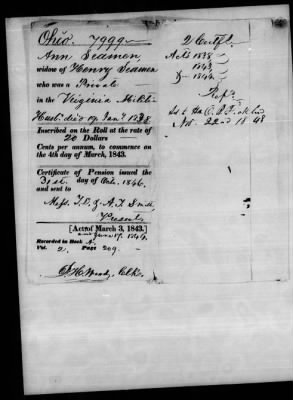 Ohio. 7999
Ann Seamen,
widow of Henry Seamen
who was a Private
in the Virginia Militia
Husb. died 09 Jany 1838
Inscribed on the Roll at the rate of
20 Dollars
Cents per annum, to commence on
the 4th day of March, 1843.
Certificate of Pension issued the
31st. day of Oct. 1846.
and sent to
Messrs. T. D. & A. F. Smith
Present
[Act of March 3, 1843.]
and June 17, 1844.
Recorded in Book A.
Vol. 2, Page 209.
Clk.
2 Certfs.
Acts 1838
1843
1844
Nov. 22nd 1848